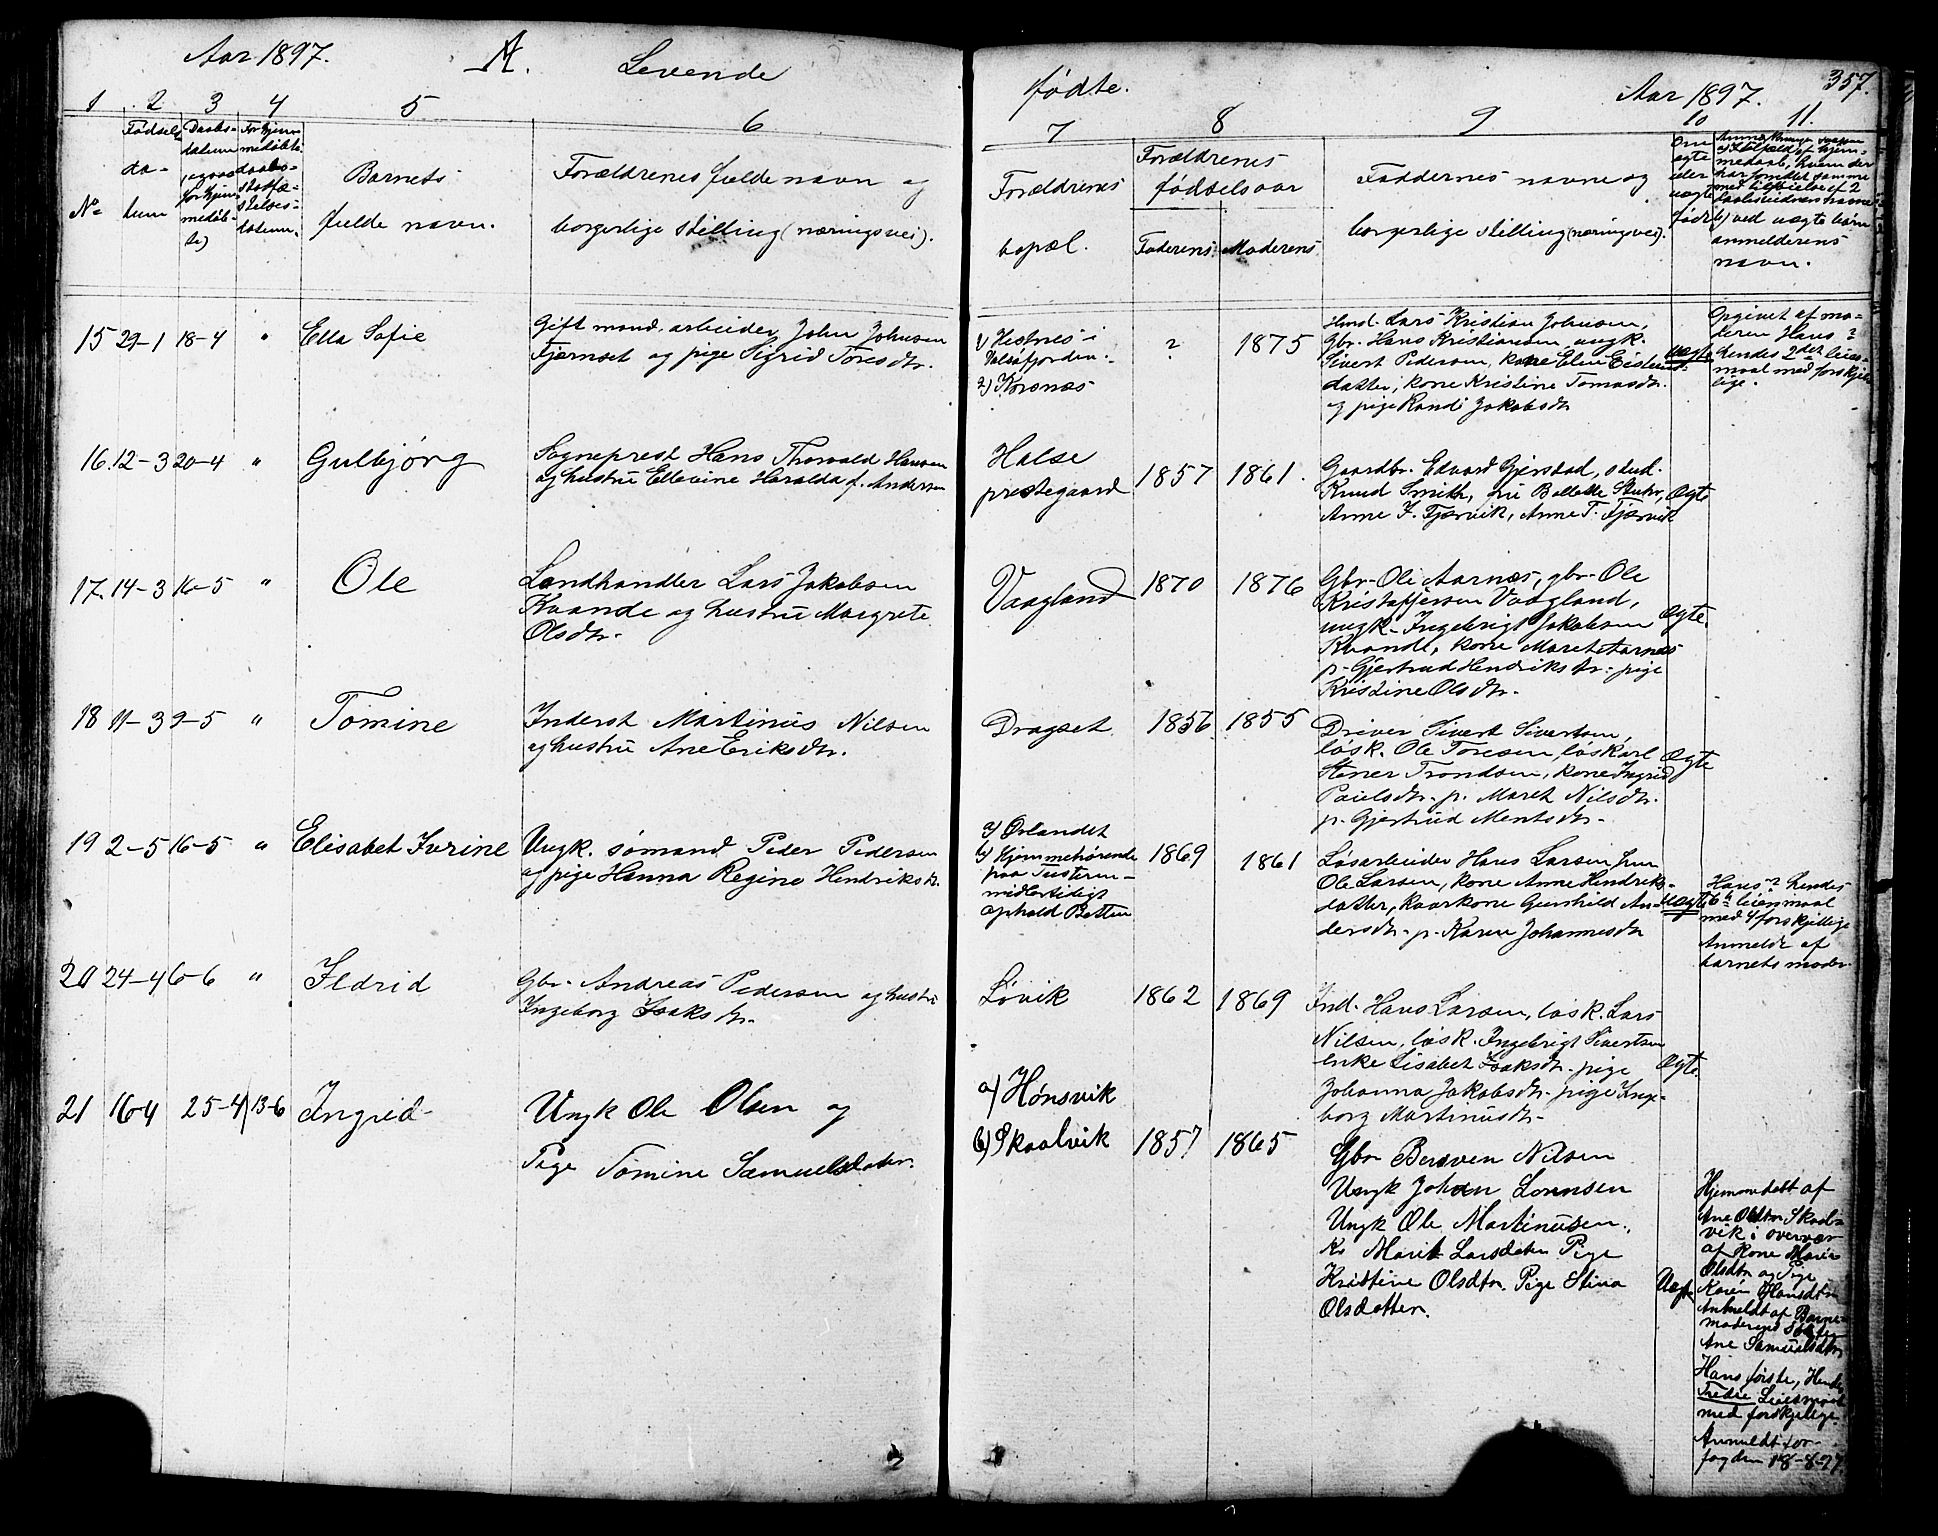 Aar 1897. A. Levende
fødte. Aar 1897. 357.
1 2 3 4 5 6
7 8 9 10 11.
No
Fødsels-
da-
tum
Daabs-
datum
medøb-
te)
datum.
Barnets
fulde navn.
Forældrenes fulde navn og
borgerlige stilling (næringsvei).
Forældrenes
bopæl.
Forældrenes
fødselsaar
Faderens Moderens
Faddernes navne og
borgerlige stilling (næringsvei).
født
b) ved uægte børn
anmelderens
navn.
15 29-1 18-4 " Ella Sofie
Gift mand, arbeider John Johnsen
Fjærnset og pige Sigrid Toresdtr.
1) Vestnes i
Valsøfjorden.
2) Korsnæs
? 1875
Lars Kristian Johnsen,
Gbr. Hans Kristiansen, ungk.
Sivert Pedersen, kone Elen Eistens-
datter, kone Kristine Tomasdtr.
og pige Randi Jakobsdtr
uægte
Opgivet af mo-
deren Hans ?
hendes 2det leier-
maal med forskjel-
lige.
16. 12-3 20-4 " Gulbjørg
Sogneprest Hans Thorvald Hansen
og hustru Ellevine Haralda f. Andersen
Halse
prestegaard
1857 1861.
Gaardbr. Edvard Gjerstad, stud.
Knud Smith, fru Bollette Stuhr,
Anne I. Fjærvik, Anne T. Fjærvik
Ægte
17. 14-3 16-5 " Ole
Landhandler Lars Jakobsen
Kvande og hustru Margrete
Olsdtr.
Vaagland
1870 1876
Gbr. Ole Aarnæs, gbr. Ole
Kristoffersen Vaagland,
ungk. Ingebrigt Jakobsen
Kvande, kone Maret Aarnæs
p. Gjertrud Hendriksdtr. pige
Kristine Olsdtr.
Ægte.
18 11-3 9-5 " Tomine
Inderst Martinus Nilsen
og hustru Ane Eriksdtr.
Dragset
1856 1855
Driver Sivert Sivertsen,
løsk. Ole Toresen, løskarl
Stener Trondsen, kone Ingrid
Paulsdtr. p. Maret Nilsdtr.
p. Gjertrud Mentsdtr.
Ægte
19 2-5 16-5 " Elisabet Ivrine
Ungk. sømand Peder Pedersen
og pige Hanna Regine Hendriksdtr.
a) Ørlandet
b) Hjemmehørende
paa Tusteren
midlertidigt
ophold Betten
1869 1861
Løsarbeider Hans Larsen,
Ole Larsen, kone Anne Hendriks-
datter, kaarkone Gunhild An-
dersdtr. p. Karen Johannesdtr
uægte
Hans ? hendes
6te leiermaal
med 4 forskjellige
Anmeldt af
barnets moder.
20 24-4 6-6 " Ildrid
Gbr. Andreas Pedersen og hustru
Ingeborg Isaksdtr.
Løvik
1862 1869
Ind. Hans Larsen, løsk. Lars
Nilsen, løsk. Ingebrigt Sivertsen
enke Lisabet Isaksdtr. pige
Johanna Jakobsdtr. pige Inge-
borg Martinusdtr.
Ægte.
21 16-4 25-4 13-6 Ingrid
Ungk Ole Olsen og
Pige Tomine Samuelsdatter.
a) Hønsvik
b) Skaalvik
1857 1865
Gbr Bersven Nilsen
Ungk Johan Lornsen
Ungk Ole Martinusen.
Ko Marit Larsdatter Pige
Kristine Olsdtr. Pige Stina
Olsdatter.
Uægt.
Hjemmedøbt af
Ane Olsdtr Skaal-
vik i overvær
af Kone Maren
Olsdtr og Pige
Karen Hansdtr
Anmeldt af Barne-
moderens Søster
Ane Samuelsdtr
Hans første, Hendes
Tredie Leiermaal
med forskjelige.
Anmeldt for
fogden 18-8-97